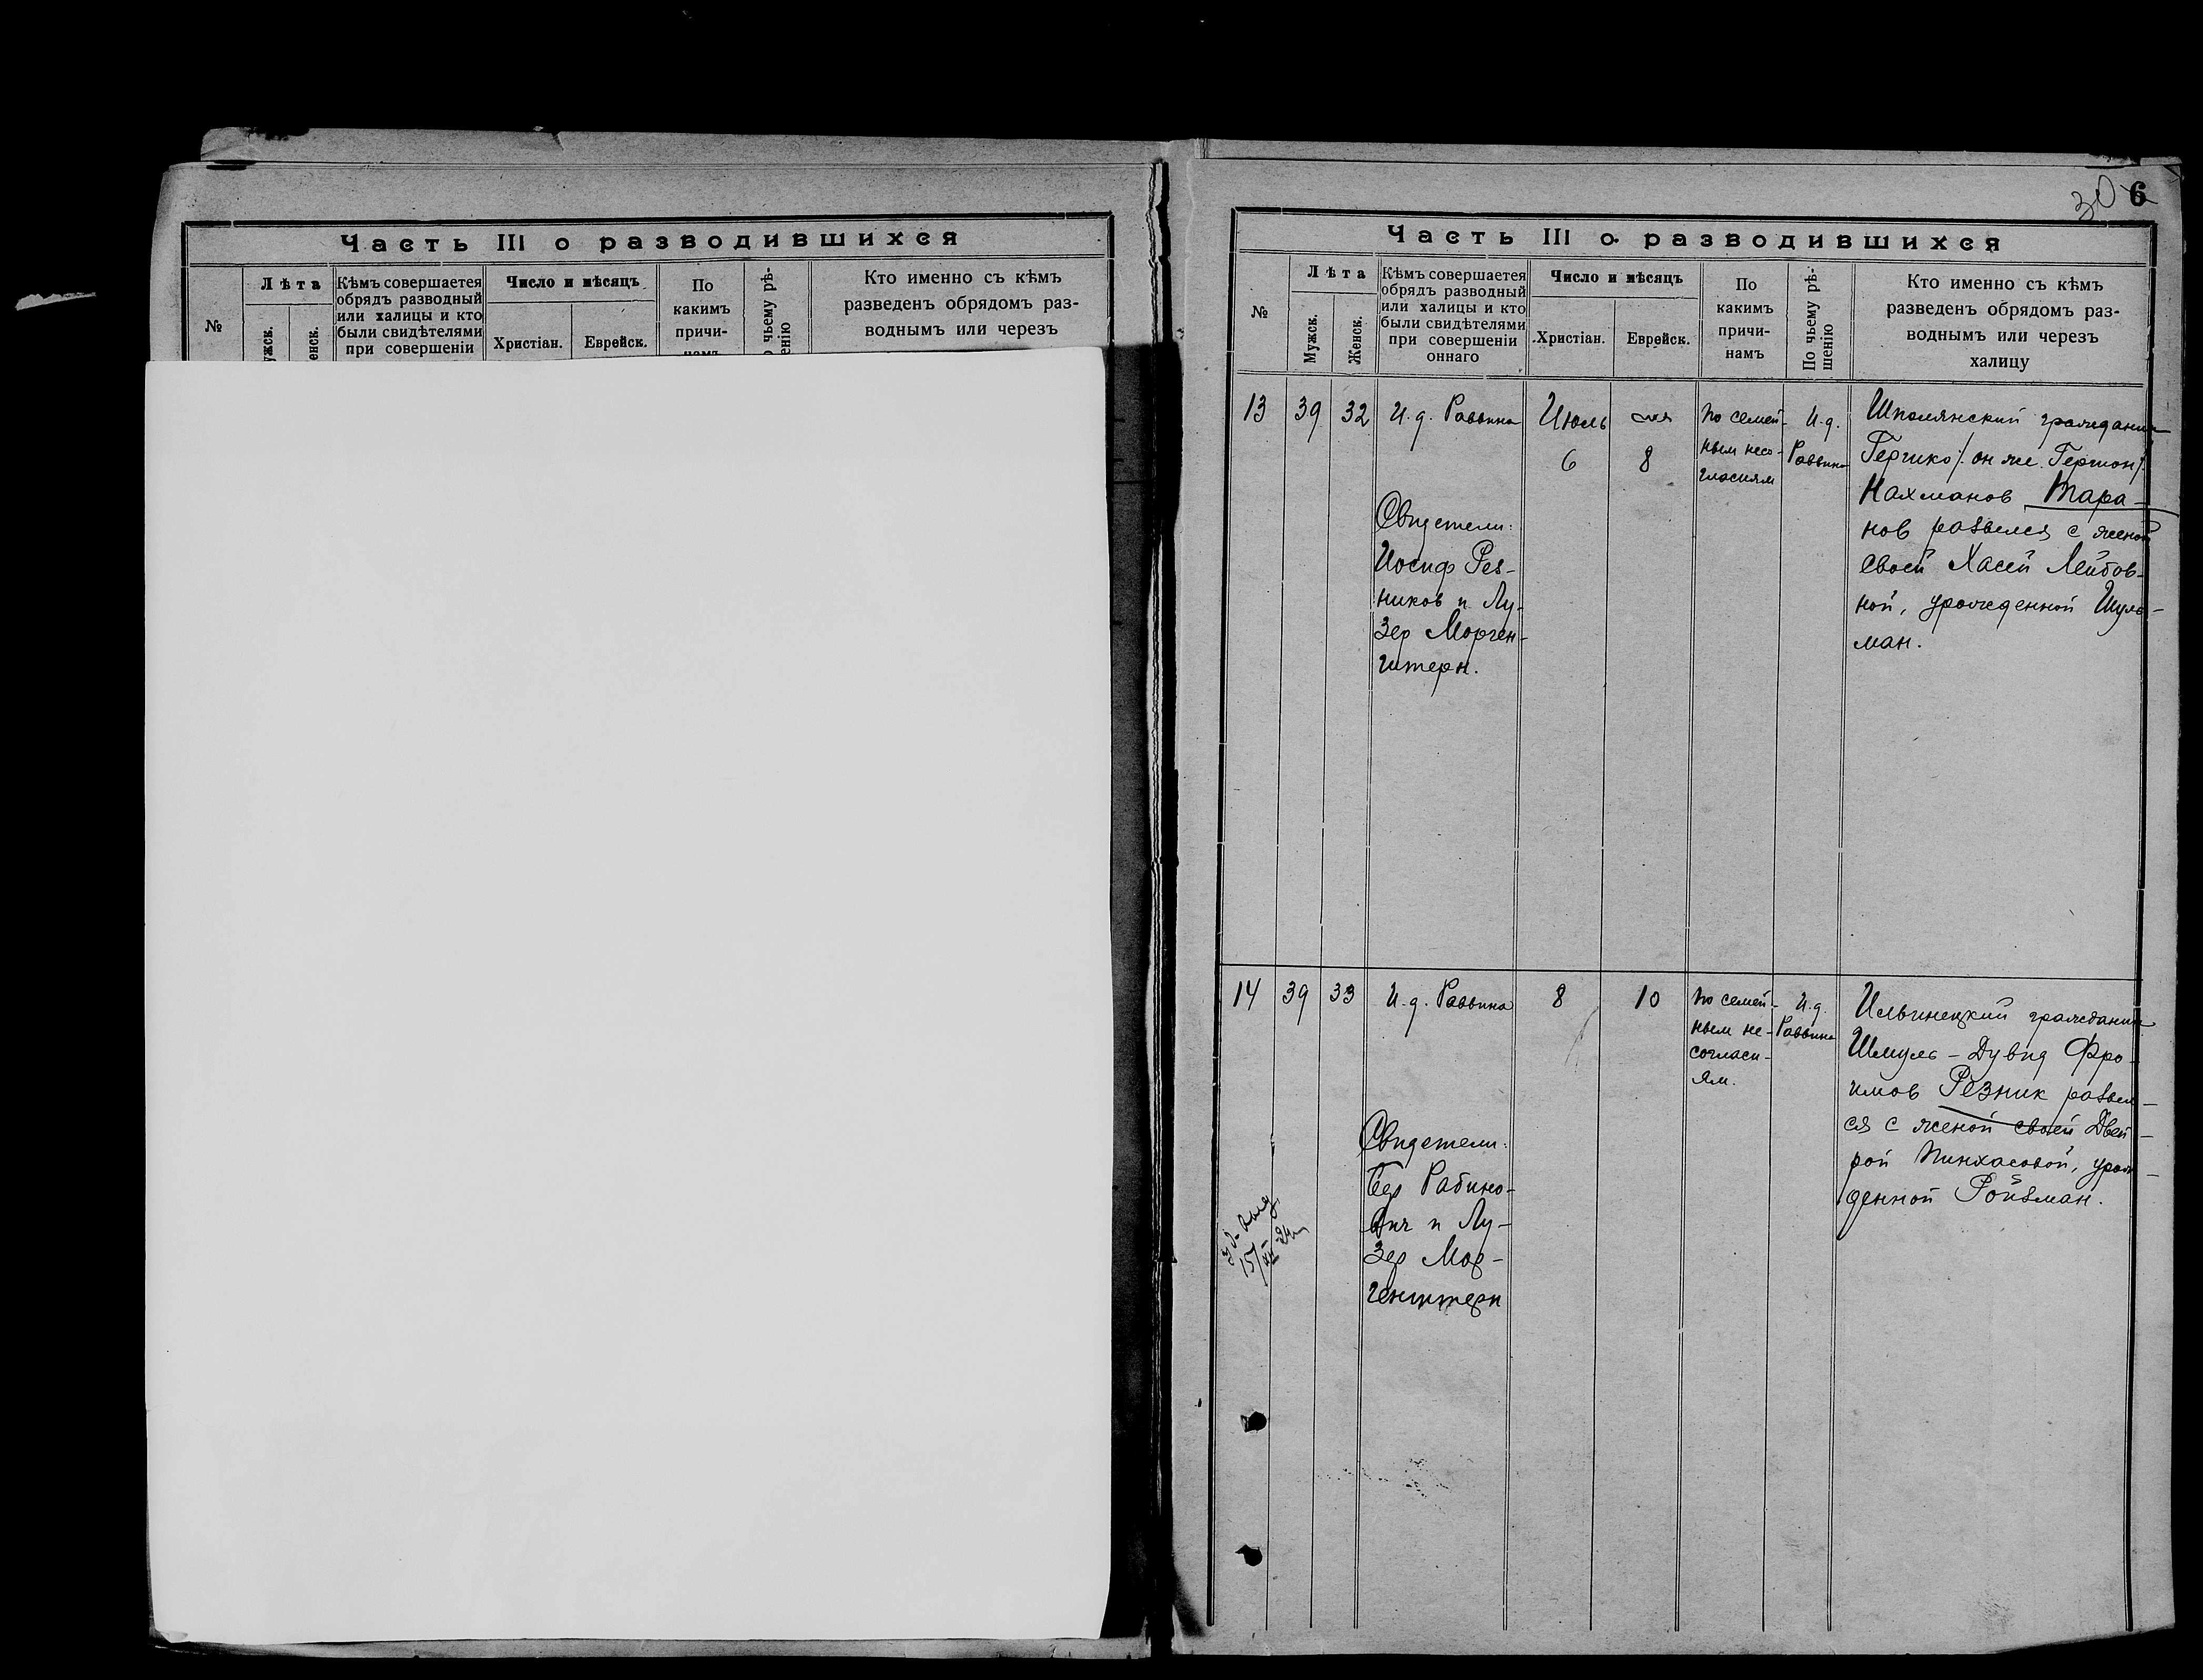 Часть III о разводившихся
№
Лѣта
Кѣмъ совершается
обрядъ разводный
или халицы и кто
были свидѣтелями
при совершеніи
Число и мѣсяцъ
Христіан.
Еврейск.
По
какимъ
причи-
Кто именно съ кѣмъ
разведенъ обрядомъ раз-
воднымъ или черезъ
30
6
Часть III о разводившихся
№
Лѣта
Мужск.
Женск.
Кѣмъ совершается
обрядъ разводный
или халицы и кто
были свидѣтелями
при совершеніи
оннаго
Число и мѣсяцъ
Христіан.
Еврейск.
По
какимъ
причи-
намъ
По чьему рѣ-
шенію
Кто именно съ кѣмъ
разведенъ обрядомъ раз-
воднымъ или через
халицу
13
39
32
И. д. Раввина
Свидетели:
Иосиф Рез-
ников и Лу-
зер Морген-
штерн.
Июль
6
8
по семей-
ным несо-
гласиям
И. д.
Раввина
Шполянский гражданин
он же Гершон
Нахманов Тара-
нов развелся с женой
своей Хасей Лейбов-
ной, урожденной Шуль-
ман.
14
39
33
И. д. Раввина
Свидетели:
Бер Рабино-
вич и Лу-
зер Мор-
генштерн
8
10
по семей-
ным не-
согласи-
ям.
И. д.
Раввина
Ильинецкий гражданин
Шмуль-Дувид Фро-
имов Резник развел-
ся с женой своей Двей-
рой Пинхасовой, урож-
денной Ройзман.